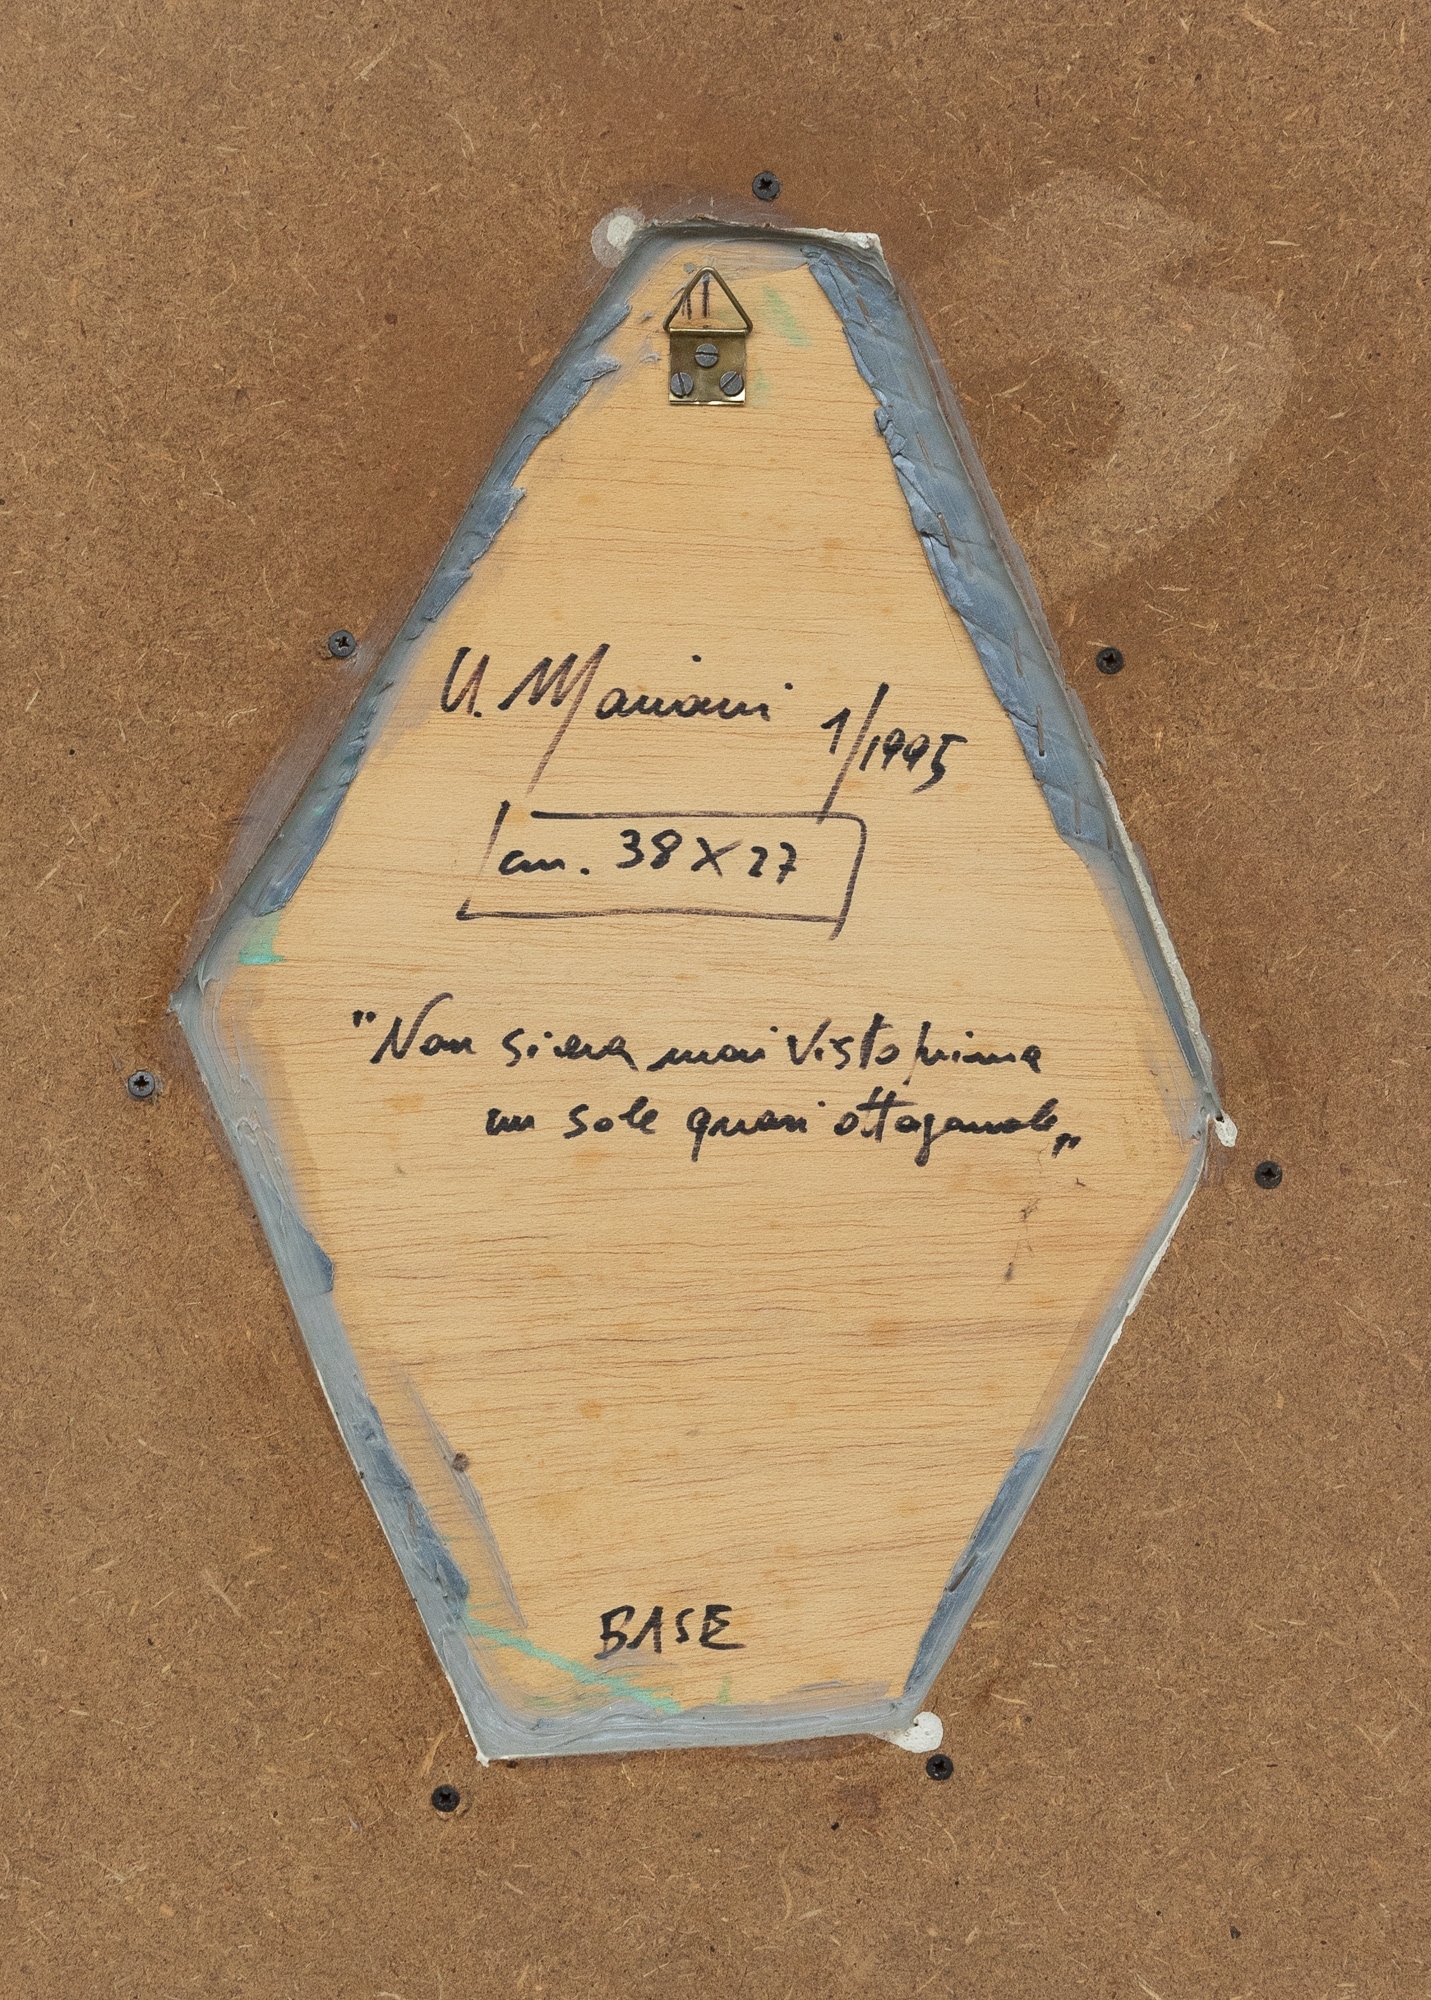 U. Mariani 1/1995
cm. 38 X 27
"Non si era mai visto prima
un sole quasi ottagonale"
BASE